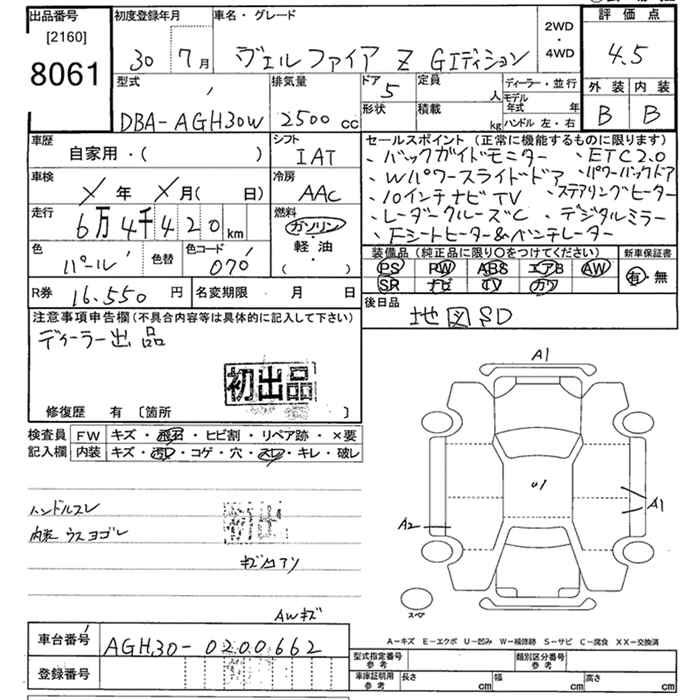 出品番号
[2160]
8061
初度登録年月
30 7月
車名・グレード
ヴェルファイア Z Gエディション
2WD
・
4WD
評価点
4.5
外装 内装
B B
型式
DBA-AGH30W
排気量
2500 cc
ドア
5
定員
人
形状
積載
kg
ディーラー・並行
モデル
年式 年
ハンドル 左・右
車歴
自家用・( )
シフト
IAT
車検
X 年 X 月( 日)
冷房
AAC
走行
6万4千420km
燃料
ガソリン
・
軽油
・
( )
色
パール
色替
色コード
070
R券
16,550 円
名変期限 月 日
セールスポイント (正常に機能するものに限ります)
、バックガイドモニター 、ETC2.0
、Wパワースライドドア 、パワーバックドア
、10インチナビTV 、ステアリングヒーター
、レーダクルーズC 、デジタルミラー
、Fシートヒーター&ベンチレーター
装備品 (純正品に限り○をつけてください)
PS PW ABS エアB AW
SR ナビ TV カワ
新車保証書
有・無
後日品
地図SD
注意事項申告欄(不具合内容等は具体的に記入して下さい)
ディーラー出品
初出品
修復歴 有 〔箇所 〕
検査員
記入欄
FW キズ・飛石・ヒビ割・リペア跡・×要
内装 キズ・汚レ・コゲ・穴・スレ・キレ・破レ
ハンドルスレ
内装ウスヨゴレ
AWキズ
A1
U1
A1
A2
スペア
A－キズ E－エクボ U－凹み W－補修跡 S－サビ C－腐食 XX－交換済
車台番号
AGH30-0200662
登録番号
型式指定番号
参考
類別区分番号
参考
車庫証明用
参考
長さ cm
幅 cm
高さ cm